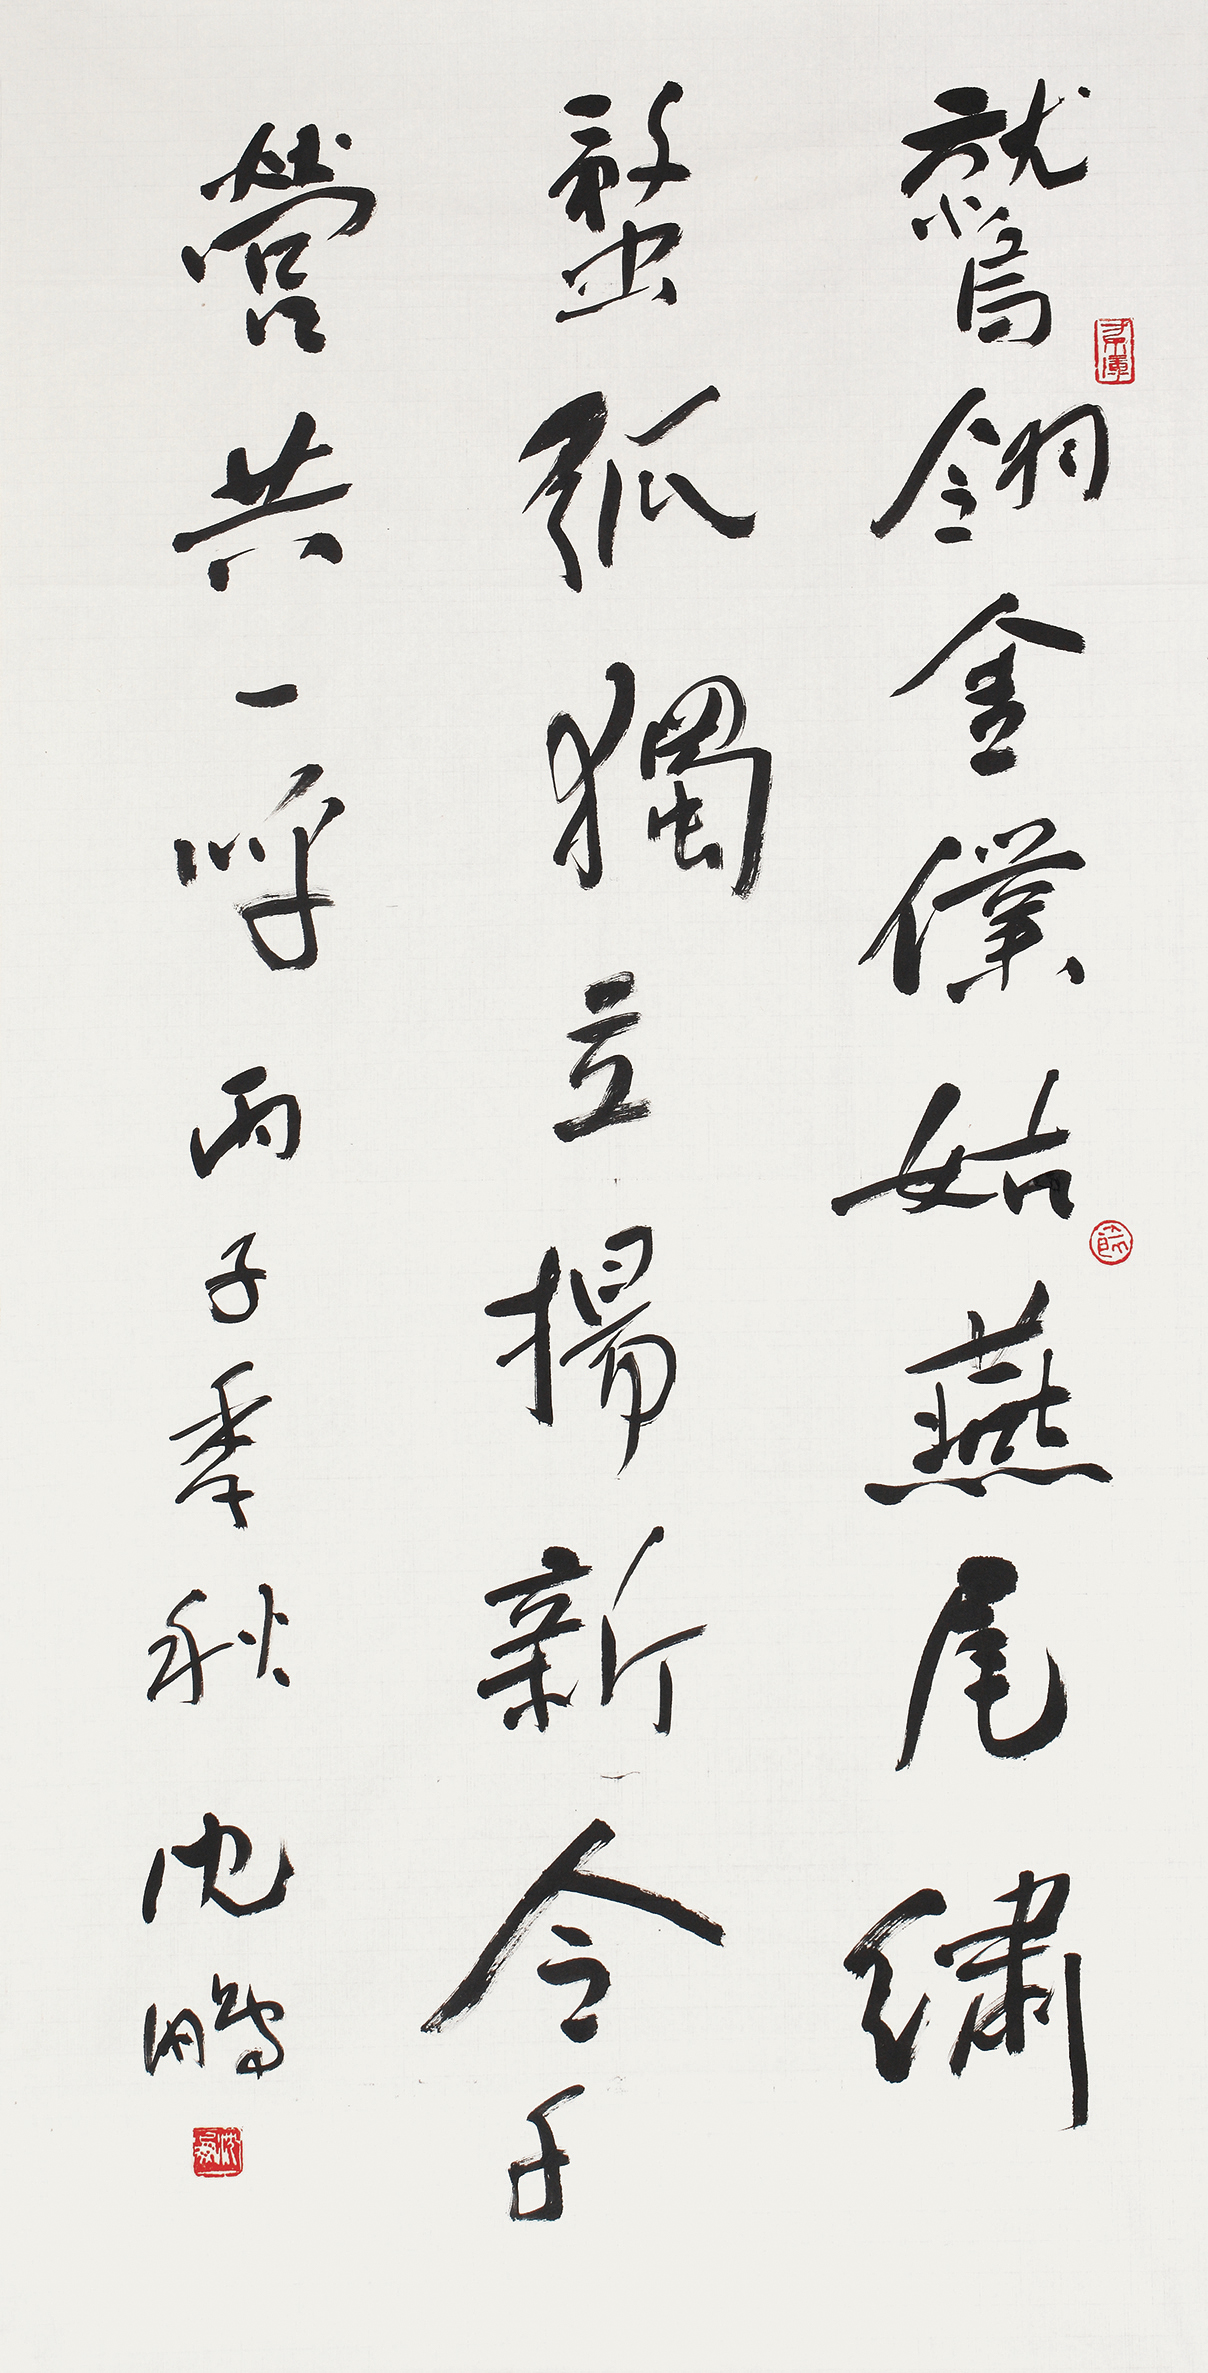 鷲翎金僕姑燕尾繡
蝥弧獨立揚新令千
營共一呼 丙子季秋 沈鵬